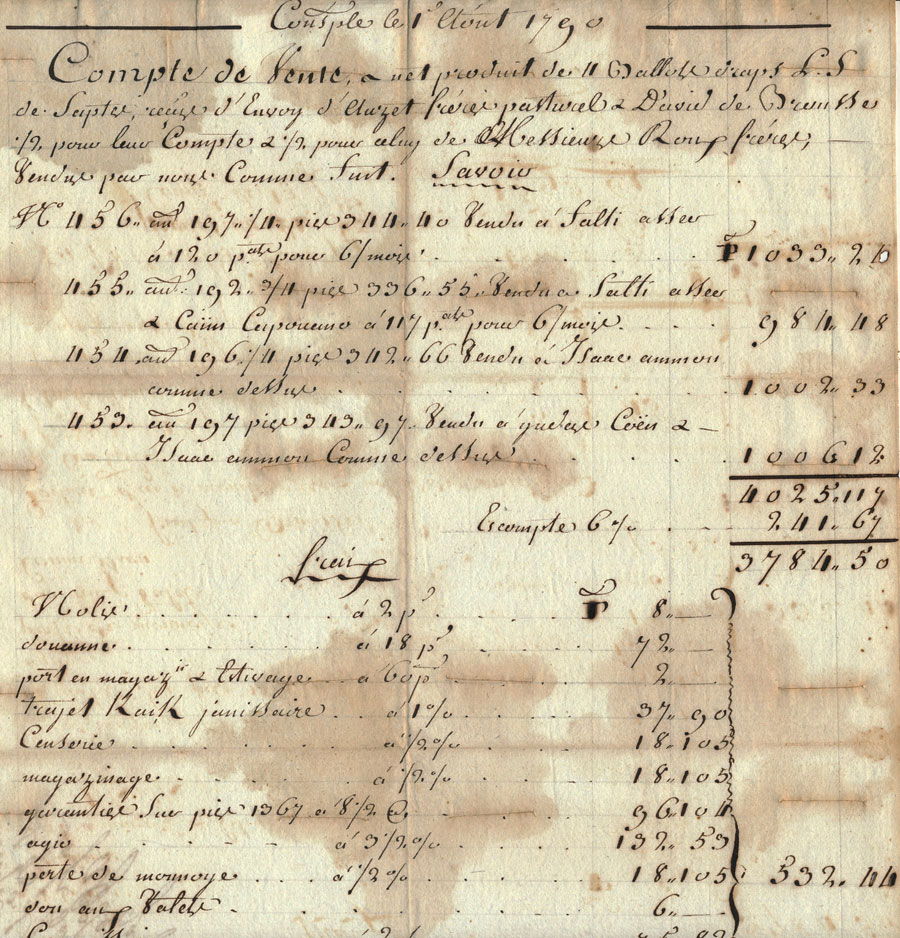 Consple le 1er Août 1790
Compte de Vente, & net produit de 4 Ballots draps L. S
de Saptes, reçus d'Envoy d'Auzet frères pasturel & David de
1/2 pour leur Compte & 1/2 pour celuy de Messieurs Roux frères,
Vendus par nous Comme Suit. Savoir
No 456. aun 197. 1/4. pics 344. 40 Vendu à Salti asseo
à 120 pras pour 6/mois . . . P 1033. 2
455. aun 192. 3/4 pics 336. 55. Vendu a Salti asseo
& Caïm Capouano à 117 pras pour 6/mois . . . 984. 48
454. aun 196. 1/4 pics 342. 66 Vendu à Isaac ammon
comme dessus . . . 1002. 33
453. aun 197 pics 343. 97. Vendu à Coën & –
Isaac ammon Comme dessus . . . 1006 12
4025. 117
Escompte 6 % . . . 241. 67
3784. 50
fraix
Nolis . . . à 2 p . . . P 8. —
douanne . . . à 18 p . . . 72. —
port en magazin & Estivage . . . à 60 p . . . 2. —
trajet Kaik janissaire . . . à 1 % . . . 37. 90
Censerie . . . à 1/2 % . . . 18. 105
magazinage . . . à 1/2 % . . . 18. 105
garanties Sur pics 1367 à 8 1/2 . . . 96. 104
agio . . . à 3 1/2 % . . . 132. 53
perte de monnoye . . . à 1/2 % . . . 18. 105 532. 44
don aux Valets . . . 6. —